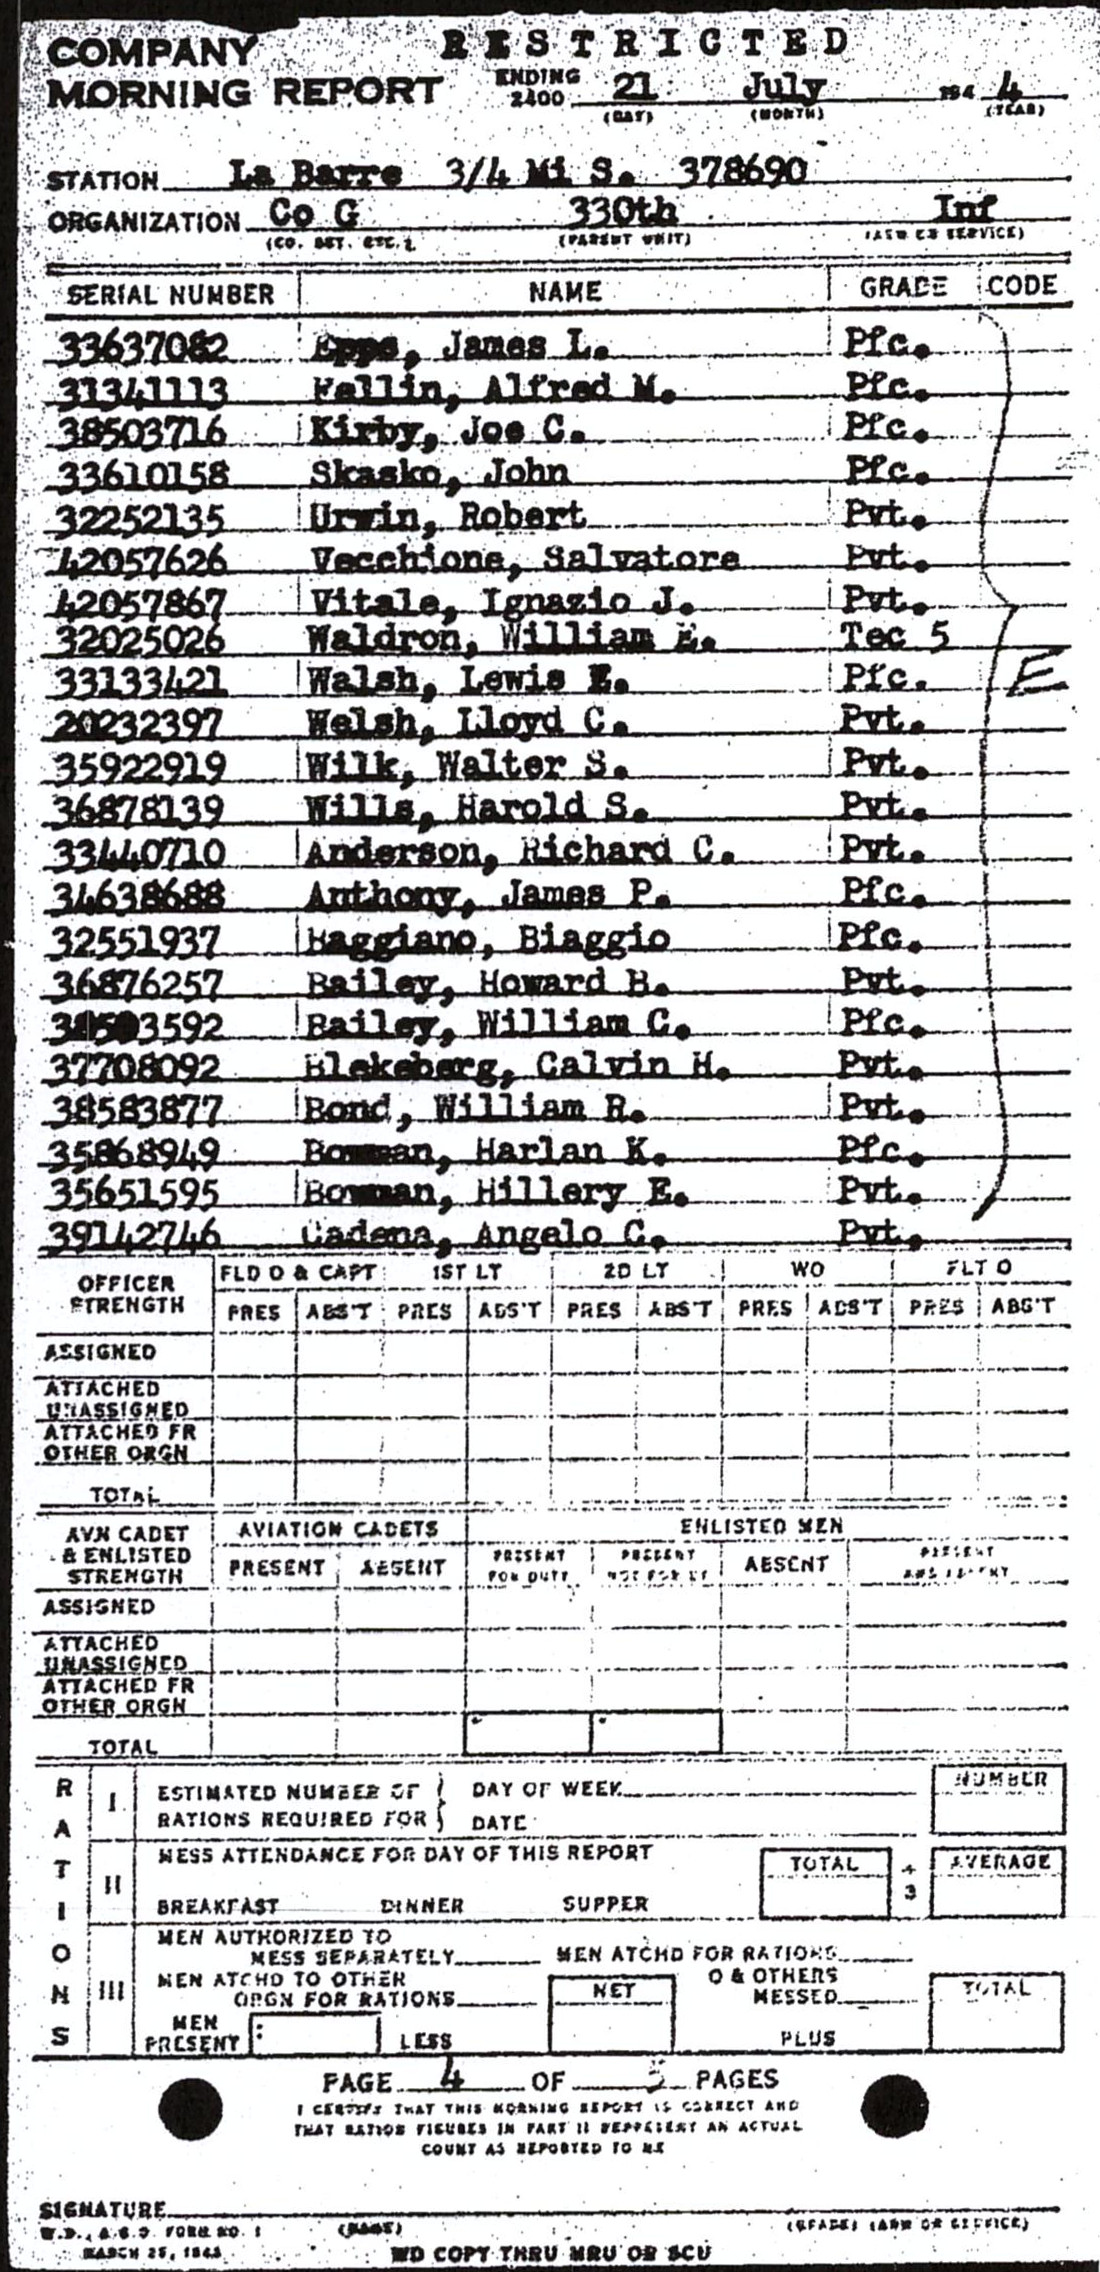 RESTRICTED
COMPANY
MORNING REPORT ENDING 2400 21 July 194 4
(DAY) (MONTH) (YEAR)
STATION La Barre 3/4 Mi S. 378690
ORGANIZATION Co G 330th Inf
(CO. DET. ETC.) (PARENT UNIT) (ARM OR SERVICE)
SERIAL NUMBER NAME GRADE CODE
33637082 Epps, James L. Pfc.
31341113 Fellin, Alfred M. Pfc.
38503716 Kirby, Joe C. Pfc.
33610158 Skasko, John Pfc.
32252135 Urwin, Robert Pvt.
42057626 Vecchione, Salvatore Pvt.
42057867 Vitale, Ignazio J. Pvt.
32025026 Waldron, William E. Tec 5
33133421 Walsh, Lewis E. Pfc. E
20232397 Welsh, Lloyd C. Pvt.
35922919 Wilk, Walter S. Pvt.
36878139 Wills, Harold S. Pvt.
33440710 Anderson, Richard C. Pvt.
34638688 Anthony, James P. Pfc.
32551937 Baggiano, Biaggio Pfc.
36876257 Bailey, Howard H. Pvt.
Bailey, William C. Pfc.
37708092 Blekeberg, Calvin H. Pvt.
38583877 Bond, William R. Pvt.
35868949 Bowman, Harlan K. Pfc.
35651595 Bowman, Hillery E. Pvt.
39142746 Cadena, Angelo C. Pvt.
OFFICER STRENGTH FLD O & CAPT 1ST LT 2D LT WO FLT O
PRES ABS'T PRES ABS'T PRES ABS'T PRES ABS'T PRES ABS'T
ASSIGNED
ATTACHED
UNASSIGNED
ATTACHED FR
OTHER ORGN
TOTAL
AVN CADET & ENLISTED STRENGTH AVIATION CADETS ENLISTED MEN
PRESENT ABSENT PRESENT FOR DUTY PRESENT NOT FOR DY ABSENT PRESENT AND ABSENT
ASSIGNED
ATTACHED
UNASSIGNED
ATTACHED FR
OTHER ORGN
TOTAL
RATIONS
I ESTIMATED NUMBER OF RATIONS REQUIRED FOR DAY OF WEEK NUMBER
DATE
II MESS ATTENDANCE FOR DAY OF THIS REPORT TOTAL ÷ 3 AVERAGE
BREAKFAST DINNER SUPPER
III MEN AUTHORIZED TO
MESS SEPARATELY MEN ATCHD FOR RATIONS
MEN ATCHD TO OTHER
ORGN FOR RATIONS NET O & OTHERS MESSED TOTAL
MEN PRESENT LESS PLUS
PAGE 4 OF 5 PAGES
I CERTIFY THAT THIS MORNING REPORT IS CORRECT AND
THAT RATION FIGURES IN PART II REPRESENT AN ACTUAL
COUNT AS REPORTED TO ME
SIGNATURE
W.D., A.G.O. FORM NO. 1 (NAME) (GRADE) (ARM OR SERVICE)
MARCH 25, 1943 WD COPY THRU MRU OR SCU